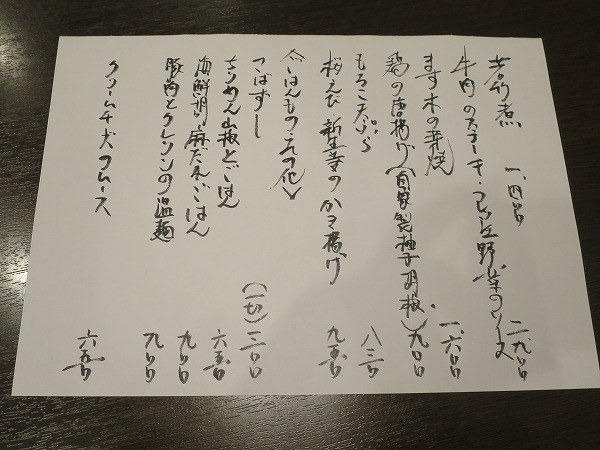 若竹煮 一、四〇〇
牛肉のステーキ・フレッシュ野菜のソース 二、九〇〇
ます木の芽焼 一、六〇〇
鶏の唐揚げ(自家製柚子胡椒) 九〇〇
もろこ天ぷら 八三〇
桜えび 新生姜のかき揚げ 九五〇
〈ごはんもの その他〉
さばずし (一切) 三〇〇
ちりめん山椒とごはん 六五〇
海鮮胡麻だれごはん 九〇〇
豚肉とクレソンの温麺 九〇〇
クリームチーズムース 六五〇